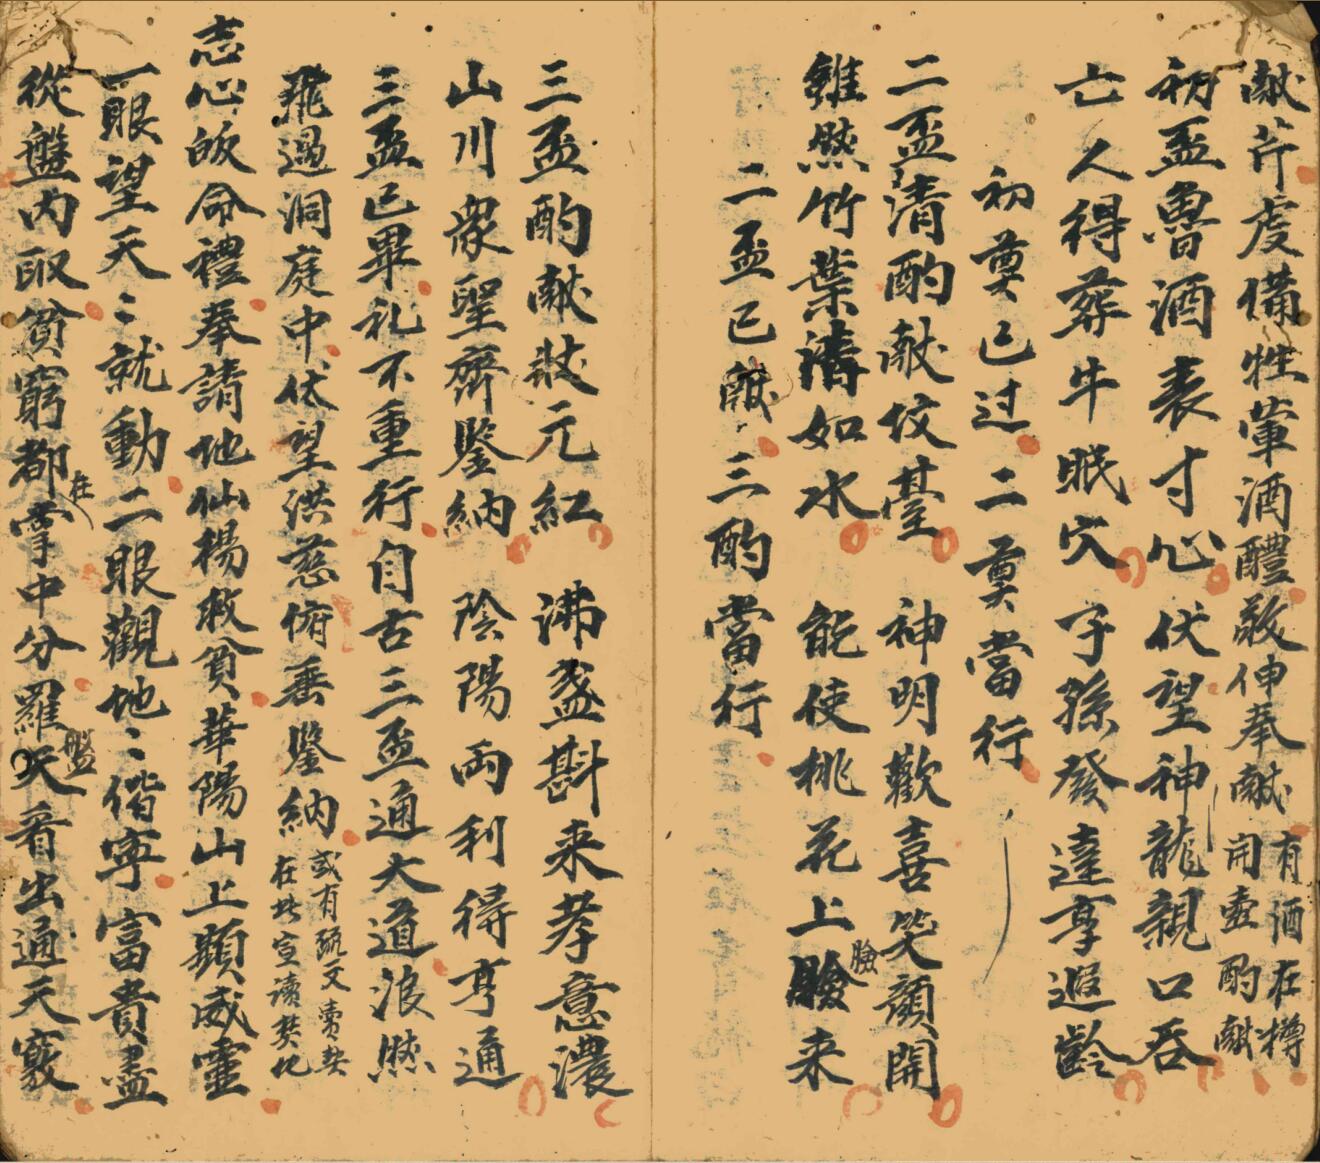 献芹虔備牲葷酒醴敬伸奉献有酒在樽開壺酌献
初盃魯酒表寸心伏望神龍親口吞
亡人得葬牛眠穴子孫發達享遐齡
初奠已过二奠當行
二盃清酌献坟臺神明歡喜笑顏開
雖然竹葉清如水能使桃花上臉臉来
二盃已献三酌當行
三盃酌献狀元紅沸盞斟来孝意濃
山川衆聖齊鑒納陰陽兩利得亨通
三盃已畢礼不重行自古三盃通大道浪然
飛過洞庭中伏望洪慈俯垂鑒納或有疏文賣契在此宣讀焚化
志心皈命禮奉請地仙楊救貧華陽山上顯威靈
一眼望天〻就動二眼觀地〻偕寧富貴盡
從盤內取貧窮都在掌中分羅盤天看出通天竅